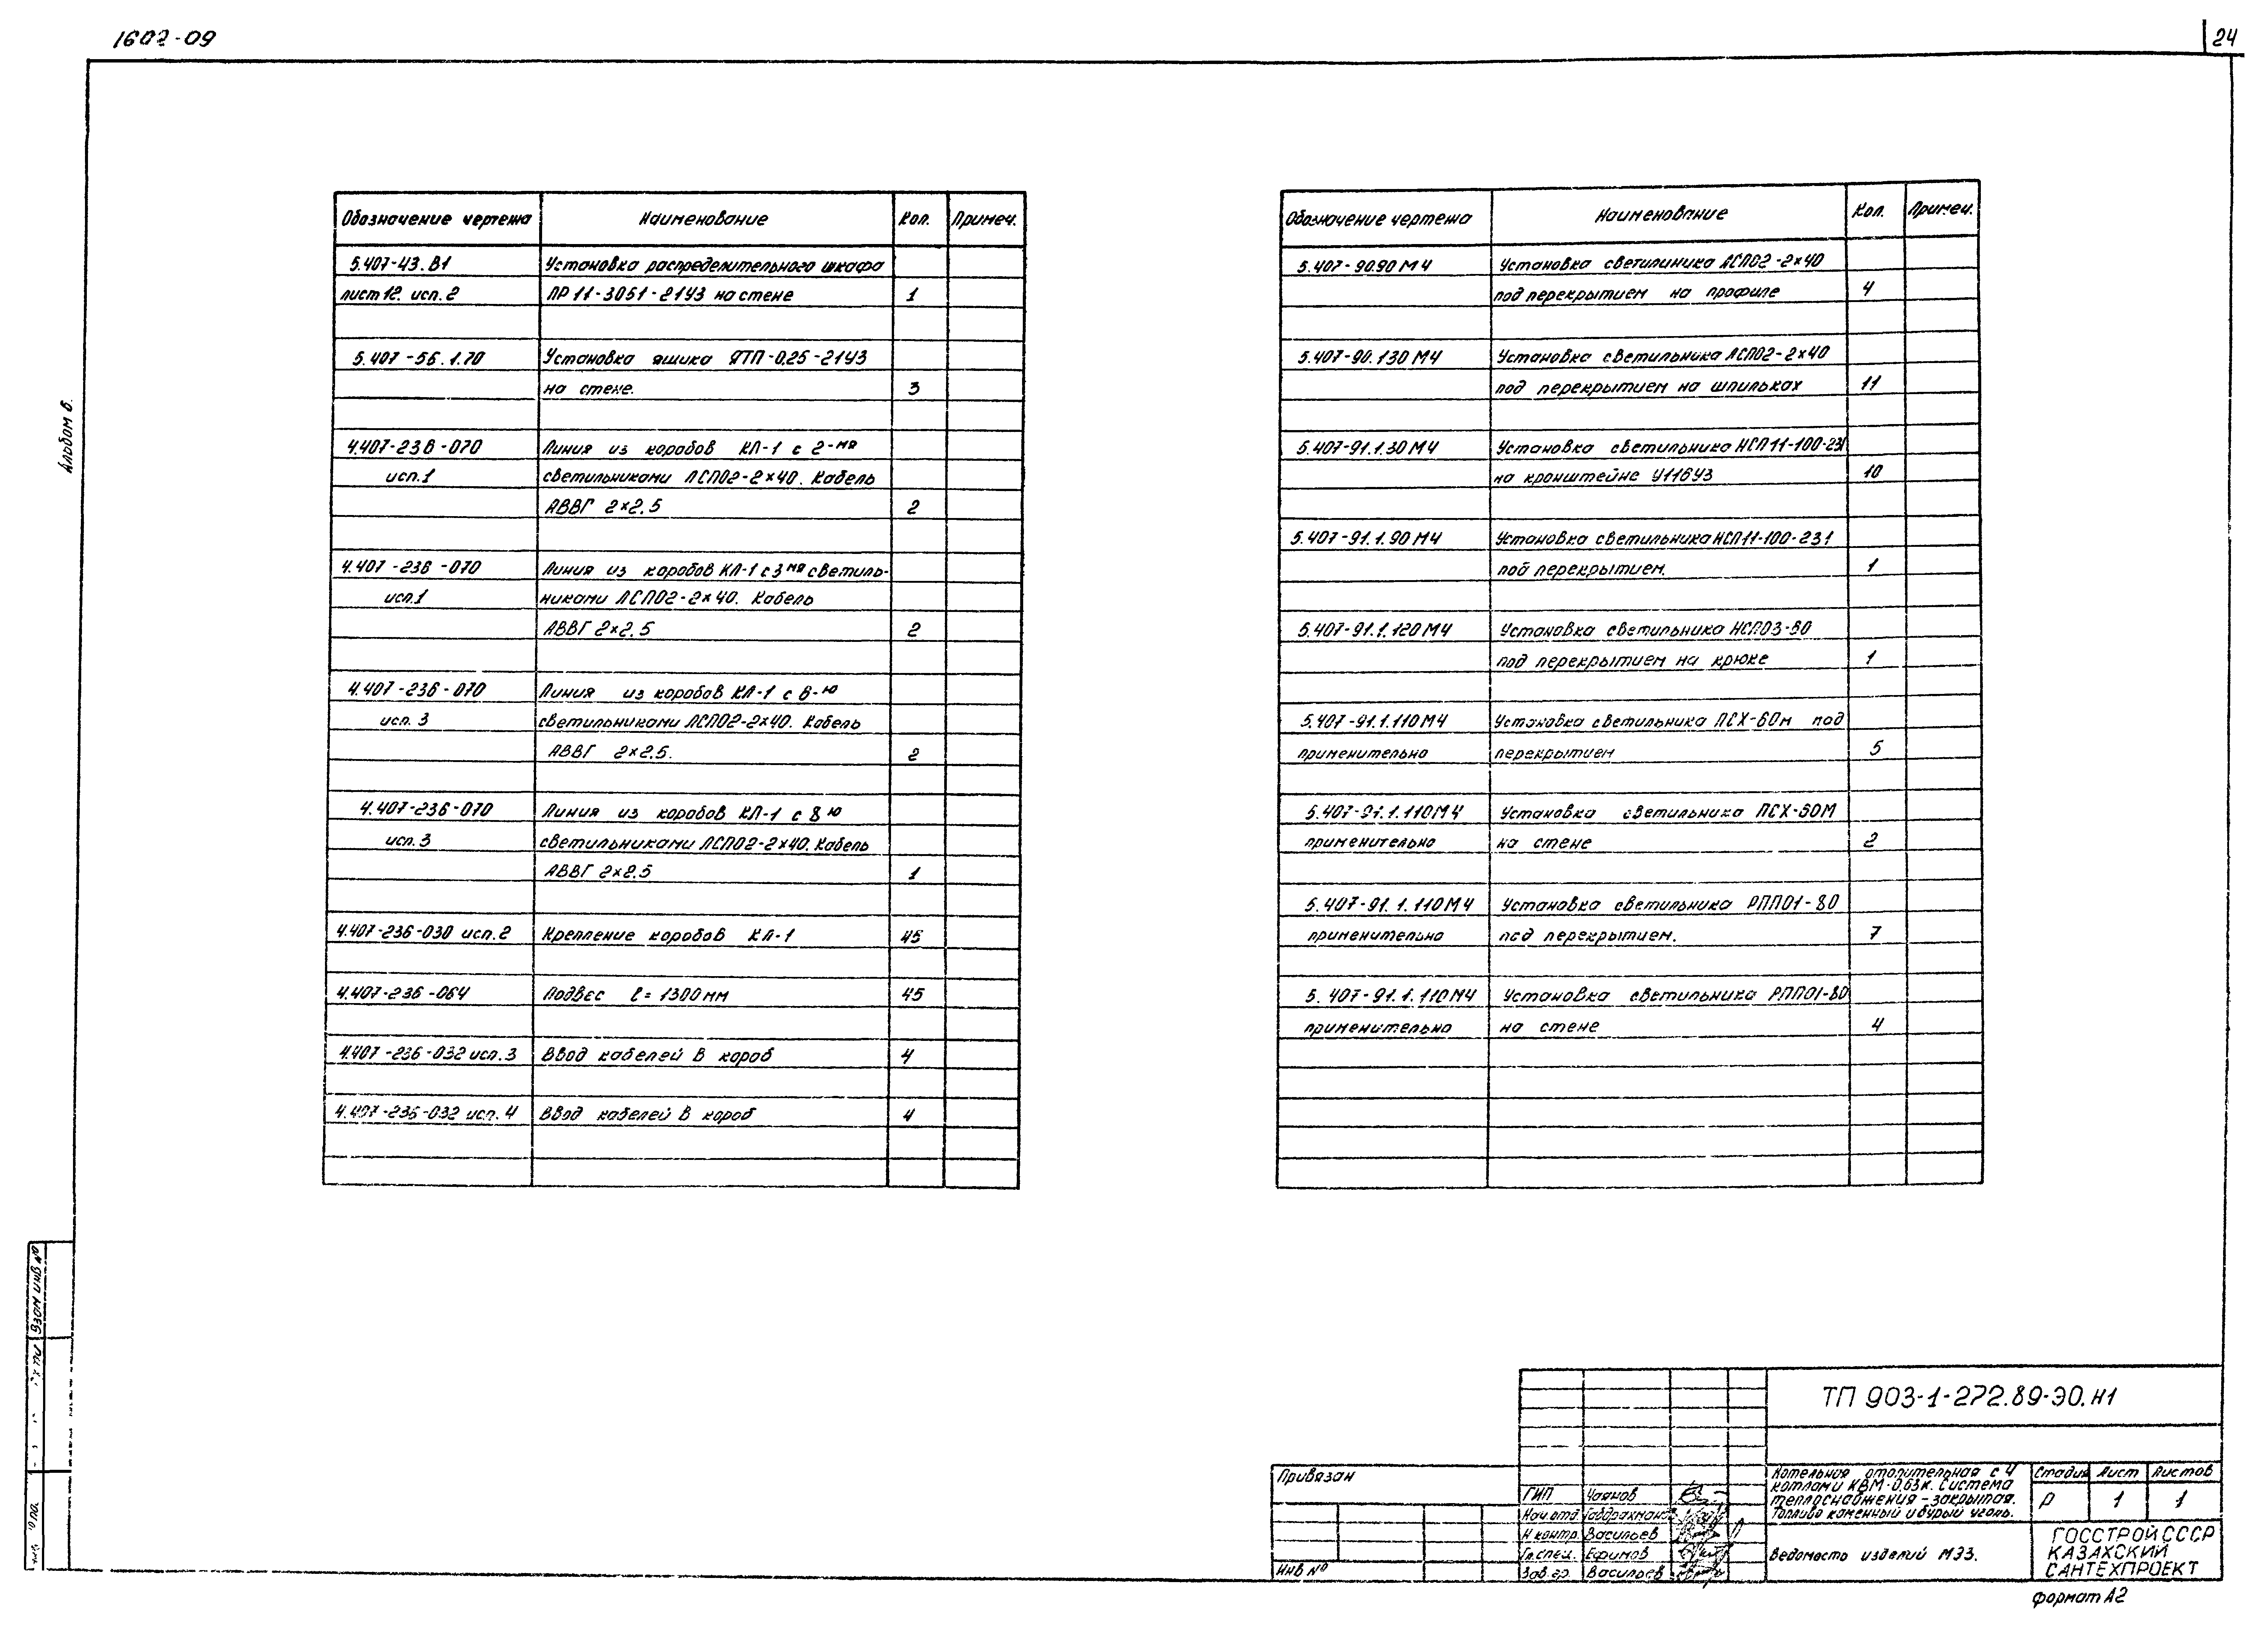 1602-09
24
Альбом 6.
Обозначение чертежа Наименование Кол. Примеч.
5.407-43.В1 Установка распределительного шкафа
лист 12. исп. 2 ПР 11-3051-21У3 на стене 1
5.407-56.1.70 Установка ящика ЯТП-0,25-21У3
на стене. 3
4.407-236-070 Линия из коробов КЛ-1 с 2-мя
исп.1 светильниками ЛСП02-2×40. Кабель
АВВГ 2×2.5 2
4.407-236-070 Линия из коробов КЛ-1 с 3мя светиль-
исп.1 никами ЛСП02-2×40. Кабель
АВВГ 2×2.5 2
4.407-236-070 Линия из коробов КЛ-1 с 6-ю
исп. 3 светильниками ЛСП02-2×40. Кабель
АВВГ 2×2.5. 2
4.407-236-070 Линия из коробов КЛ-1 с 8 ю
исп. 3 светильниками ЛСП02-2×40. Кабель
АВВГ 2×2.5 1
4.407-236-030 исп. 2 Крепление коробов КЛ-1 45
4.407-236-064 Подвес ℓ= 1300 мм 45
4.407-236-032 исп. 3 Ввод кабелей в короб 4
4.407-236-032 исп. 4 Ввод кабелей в короб 4
Обозначение чертежа Наименование Кол. Примеч.
5.407-90.90 МЧ Установка светилиника ЛСП02-2×40
под перекрытием на профиле 4
5.407-90.130 МЧ Установка светильника ЛСП02-2×40
под перекрытием на шпильках 11
5.407-91.1.30 МЧ Установка светильника НСП11-100-231
на кронштейне У116У3 10
5.407-91.1.90 МЧ Установка светильника НСП11-100-231
под перекрытием. 1
5.407-91.1.120 МЧ Установка светильника НСП03-60
под перекрытием на крюке 1
5.407-91.1.110 МЧ Установка светильника ПСХ-60м под
применительно перекрытием 5
5.407-91.1.110 МЧ Установка светильника ПСХ-60М
применительно на стене 2
5.407-91.1.110 МЧ Установка светильника РПП01-80
применительно под перекрытием. 7
5.407-91.1.110 МЧ Установка светильника РПП01-80
применительно на стене 4
Взам инв №
ТП 903-1-272.89-ЭО.И1
Привязан
Инв №
ГИП Чаянов
Нач.отд. Габдрахманов
Н контр. Васильев
Гл.спец. Ефимов
Зав. гр. Васильев
Котельная отопительная с 4
котлами КВМ-0,63К. Система
теплоснабжения - закрытая.
Топливо каменный и бурый уголь.
Ведомость изделий МЭЗ.
Стадия Лист Листов
Р 1 1
ГОССТРОЙ СССР
КАЗАХСКИЙ
САНТЕХПРОЕКТ
формат А2